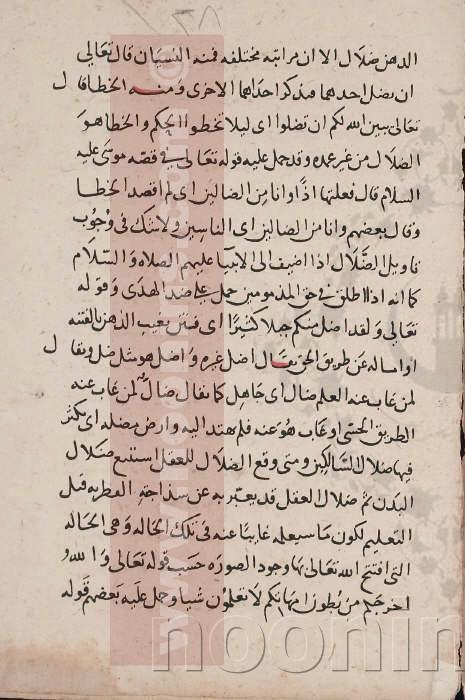 الذهن ضلال الا ان مراتبه مختلفه فمنه النسيان قال تعالى
ان تضل احدهما فتذكر احداهما الاخرى ومنه الخطا قال
تعالى يبين الله لكم ان تضلوا اى ليلا تخطوا الحكم والخطا هو
الضلال من غير عمد وقد حمل عليه قوله تعالى فى قصه موسى عليه
السلام قال فعلتها اذا وانا من الضالين اى لم اقصد الخطا
وقال بعضهم وانا من الضالين اى الناسين ولا شك فى وجوب
تاويل الضلال اذا اضيف الى الانبيا عليهم الصلاه والسلام
كما انه اذا اطلق فى حق المذمومين حمل على ضد الهدى وقوله
تعالى ولقد اضل منكم جبلا كثيرا اى فتن بغيب الذهن بالفتنه
او اماله عن طريق الحق يقال اضل غيره واضل هو مثل ضل ويقال
لمن غاب عنه العلم ضال اى جاهل كما يقال ضال لمن غاب عنه
الطريق الحسى او غاب هو عنه فلم يهتد اليه وارض مضله اى يكثر
فيها ضلال السالكين ومتى وقع الضلال للعقل استتبع ضلال
البدن ثم ضلال العقل قد يعبر به عن سذاجة الفطريه قبل
التعليم لكون ما سيعلمه غايبا عنه فى تلك الحاله وهى الحاله
التى افتتح الله تعالى بها وجود الصوره حسب قوله تعالى والله
اخرجكم من بطون امهاتكم لا تعلمون شيا وحمل عليه بعضهم قوله
www.noonin
noonin